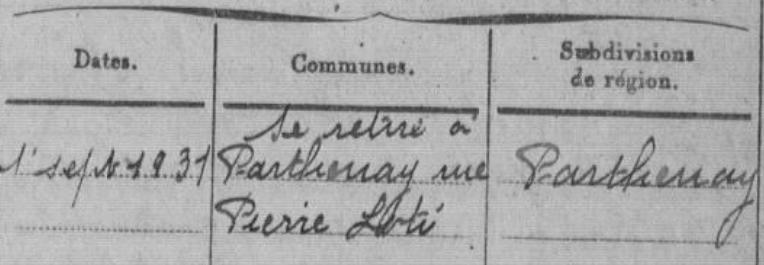 Dates.
Communes.
Subdivisions
de région.
Se retire à
1er sept 1931 Parthenay rue Parthenay
Pierre Loti